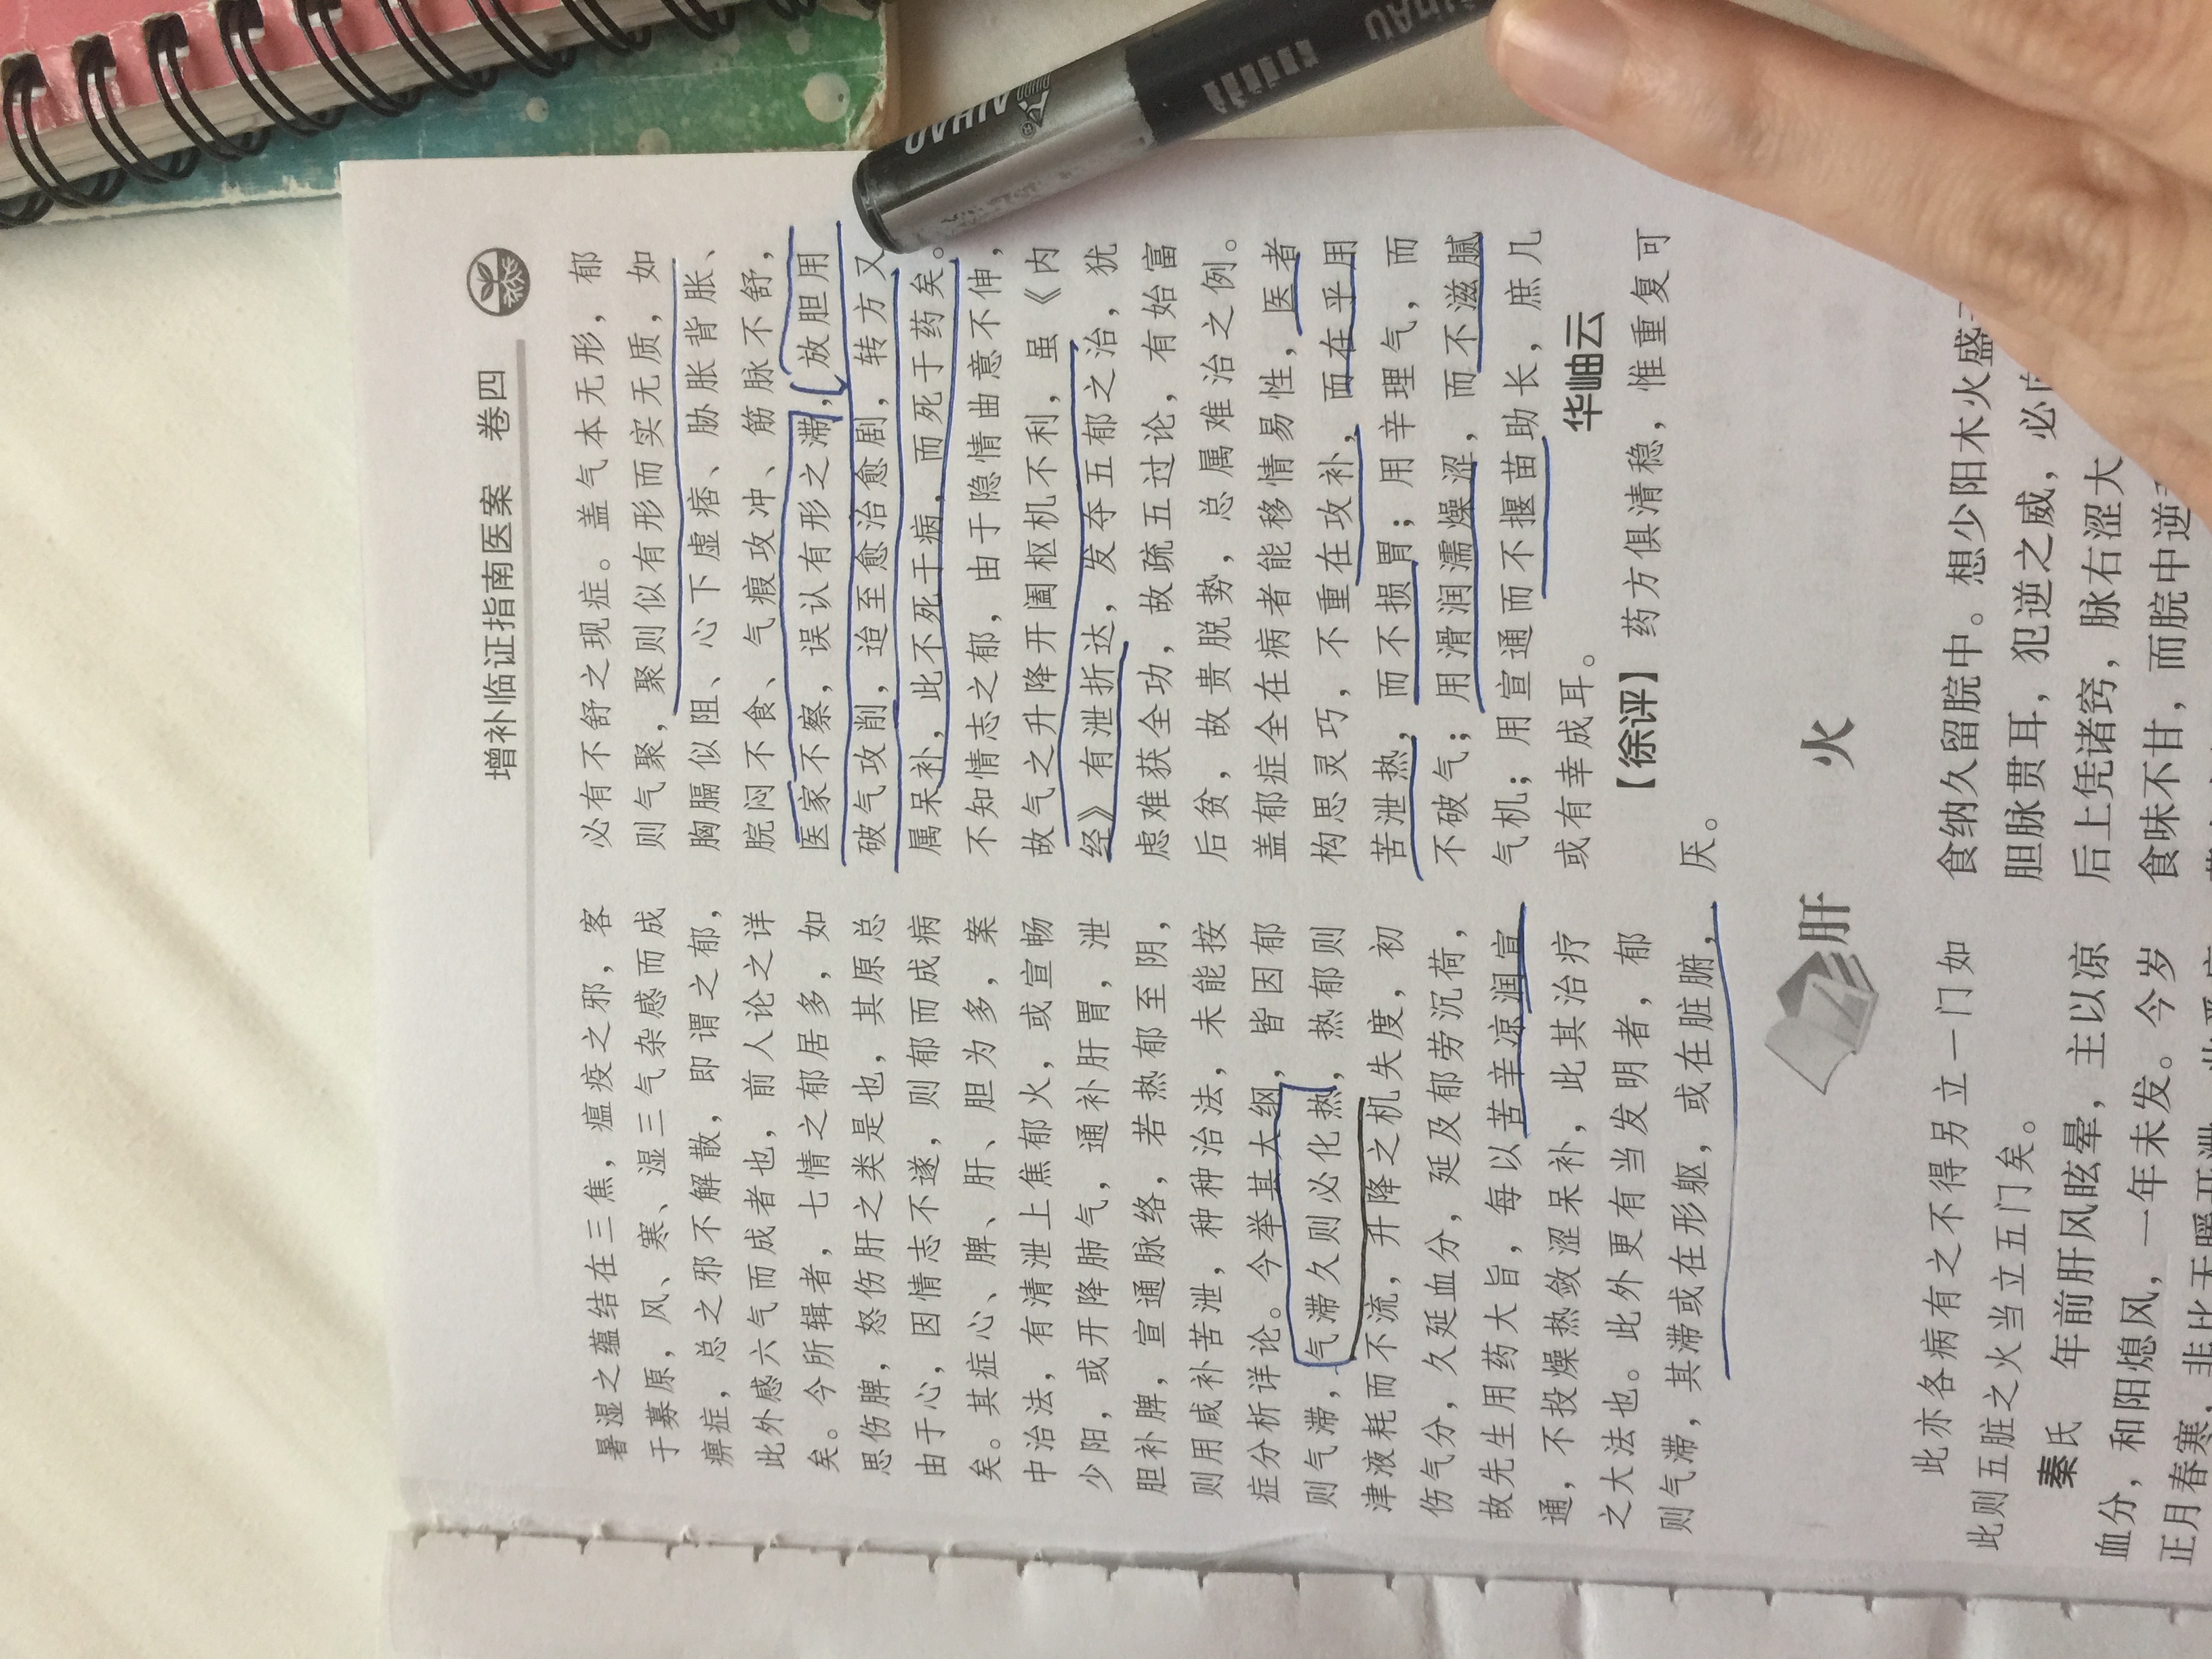 增补临证指南医案 卷四
暑湿之蕴结在三焦，瘟疫之邪，客
于募原，风、寒、湿三气杂感而成
痹症，总之邪不解散，即谓之郁，
此外感六气而成者也，前人论之详
矣。今所辑者，七情之郁居多，如
思伤脾，怒伤肝之类是也，其原总
由于心，因情志不遂，则郁而成病
矣。其症心、脾、肝、胆为多，案
中治法，有清泄上焦郁火，或宣畅
少阳，或开降肺气，通补肝胃，泄
胆补脾，宣通脉络，若热郁至阴，
则用咸补苦泄，种种治法，未能按
症分析详论。今举其大纲，皆因郁
则气滞，气滞久则必化热，热郁则
津液耗而不流，升降之机失度，初
伤气分，久延血分，延及郁劳沉荷，
故先生用药大旨，每以苦辛凉润宣
通，不投燥热敛涩呆补，此其治疗
之大法也。此外更有当发明者，郁
则气滞，其滞或在形躯，或在脏腑，
必有不舒之现症。盖气本无形，郁
则气聚，聚则似有形而实无质，如
胸膈似阻、心下虚痞、胁胀背胀、
脘闷不食、气瘕攻冲、筋脉不舒，
医家不察，误认有形之滞，放胆用
破气攻削，迨至愈治愈剧，转方又
属呆补，此不死于病，而死于药矣。
不知情志之郁，由于隐情曲意不伸，
故气之升降开阖枢机不利，虽《内
经》有泄折达，发夺五郁之治，犹
虑难获全功，故疏五过论，有始富
后贫，故贵脱势，总属难治之例。
盖郁症全在病者能移情易性，医者
构思灵巧，不重在攻补，而在乎用
苦泄热，而不损胃；用辛理气，而
不破气；用滑润濡燥涩，而不滋腻
气机；用宣通而不揠苗助长，庶几
或有幸成耳。
华岫云
【徐评】 药方俱清稳，惟重复可
厌。
肝 火
此亦各病有之不得另立一门如
此则五脏之火当立五门矣。
秦氏 年前肝风眩晕，主以凉
血分，和阳熄风，一年未发。今岁
正月春寒，非比天暖开泄
食纳久留脘中。想少阳木火盛
胆脉贯耳，犯逆之威，必
后上凭诸窍，脉右涩大
食味不甘，而脘中逆
UNAU
UNAU